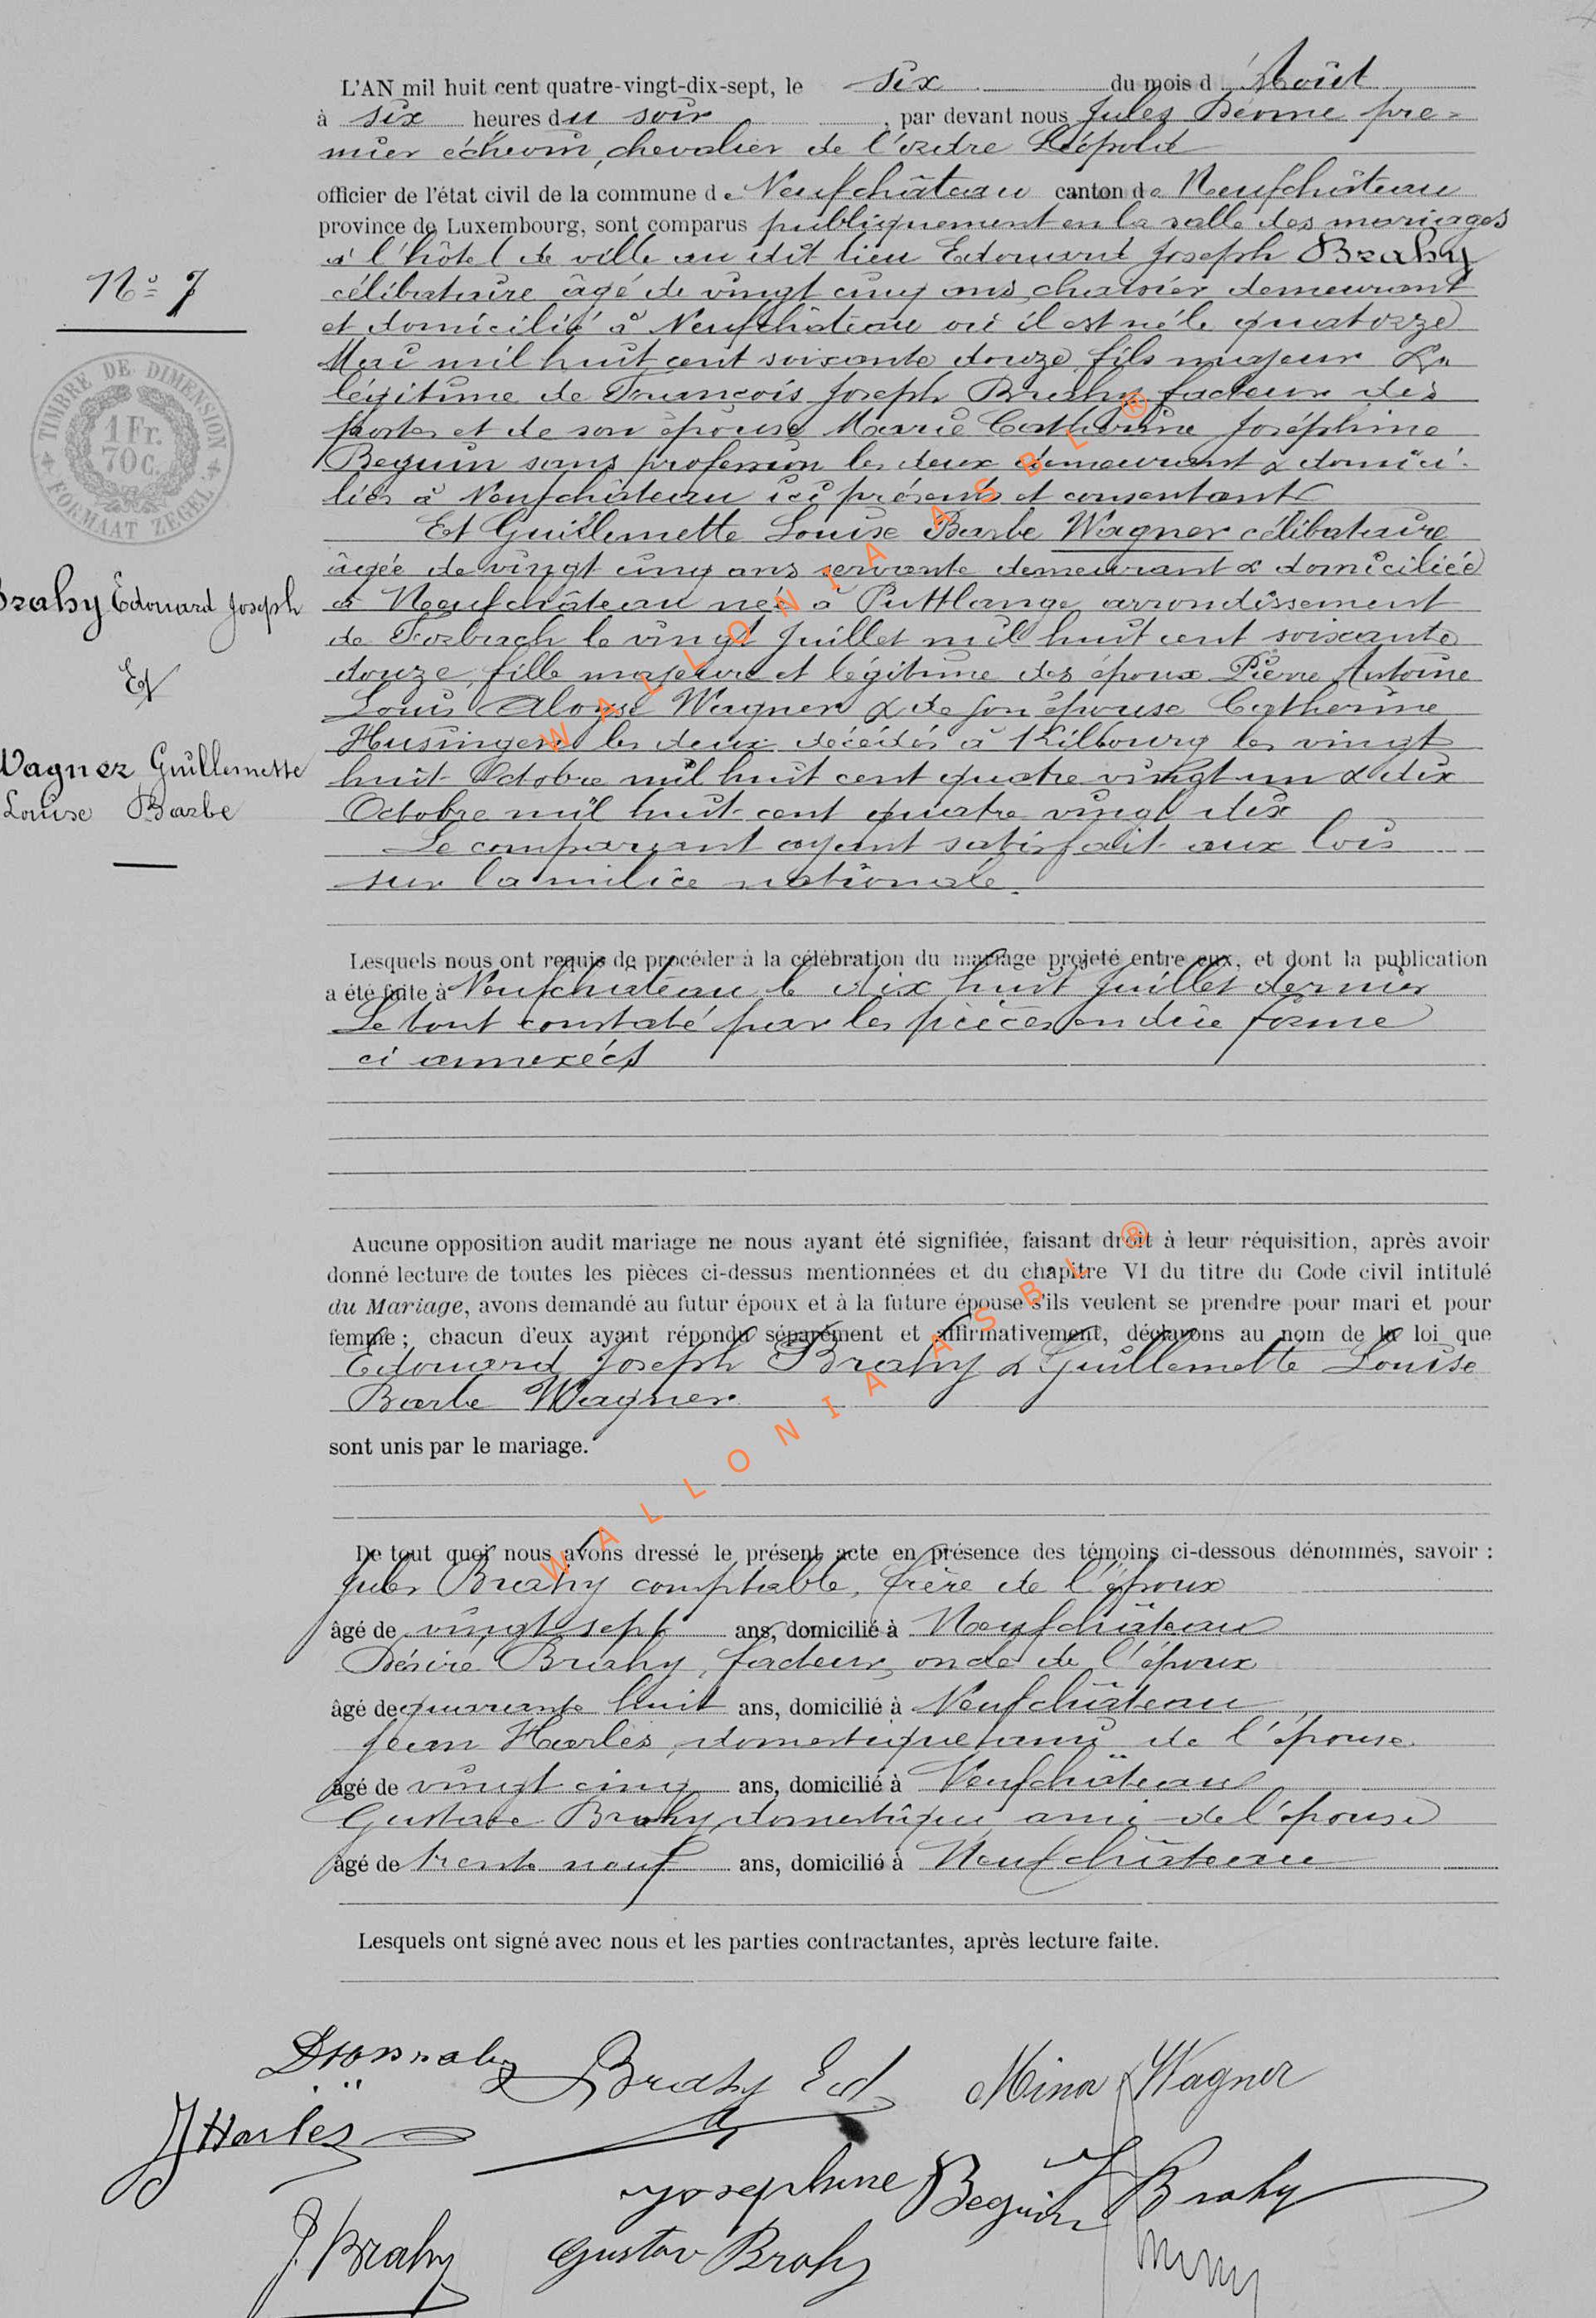 L'AN mil huit cent quatre-vingt-dix-sept, le six du mois d'Août
à six heures du soir, par devant nous Jules pre-
mier échevin, chevalier de l'ordre Léopold
officier de l'état civil de la commune de Neufchâteau canton de Neufchâteau
province de Luxembourg, sont comparus publiquement en la salle des mariages
à l'hôtel de ville au dit lieu Edouard Joseph Brahy
célibataire âgé de vingt cinq ans, demeurant
et domicilié à Neufchâteau où il est né le quatorze
Mai mil huit cent soixante douze, fils majeur &
légitime de François Joseph Brahy facteur des
postes et de son épouse Marie Catherine Joséphine
Beguin sans profession les deux demeurant & domici-
liés à Neufchâteau ici présents et consentants
Et Guillemette Louise Barbe Wagner célibataire
âgée de vingt cinq ans servante demeurant & domiciliée
à Neufchâteau née à Puttlange arrondissement
de Forbach le vingt Juillet mil huit cent soixante
douze, fille majeure et légitime des époux Pierre Antoine
Louis Wagner & de son épouse Catherine
les deux décédés à Kilbourg les vingt
huit Octobre mil huit cent quatre vingt un & dix
Octobre mil huit cent quatre vingt dix
Le comparant ayant satisfait aux lois
sur la milice nationale.
No 7
TIMBRE DE DIMENSION
1 Fr.
70 C.
FORMAAT ZEGEL
Brahy Edouard Joseph
Et
Wagner Guillemette
Louise Barbe
Lesquels nous ont requis de procéder à la célébration du mariage projeté entre eux, et dont la publication
a été faite à Neufchâteau le dix huit Juillet dernier
Le tout constaté par les pièces en due forme
ci annexées
Aucune opposition audit mariage ne nous ayant été signifiée, faisant droit à leur réquisition, après avoir
donné lecture de toutes les pièces ci-dessus mentionnées et du chapitre VI du titre du Code civil intitulé
du Mariage, avons demandé au futur époux et à la future épouse s'ils veulent se prendre pour mari et pour
femme ; chacun d'eux ayant répondu séparément et affirmativement, déclarons au nom de la loi que
Edouard Joseph Brahy & Guillemette Louise
Barbe Wagner
sont unis par le mariage.
De tout quoi nous avons dressé le présent acte en présence des témoins ci-dessous dénommés, savoir :
Jules Brahy comptable, frère de l'époux
âgé de vingt sept ans, domicilié à Neufchâteau
Désiré Brahy, facteur, oncle de l'époux
âgé de quarante huit ans, domicilié à Neufchâteau
Jean Harles, domestique, ami de l'épouse
âgé de vingt cinq ans, domicilié à Neufchâteau
Gustave Brahy, domestique, ami de l'épouse
âgé de trente neuf ans, domicilié à Neufchâteau
Lesquels ont signé avec nous et les parties contractantes, après lecture faite.
Brahy Ed. Mina Wagner
J Harles
Josephine Beguin J Brahy
J. Brahy Gustav Brahy
WALLONIA ASBL ®
WALLONIA ASBL ®